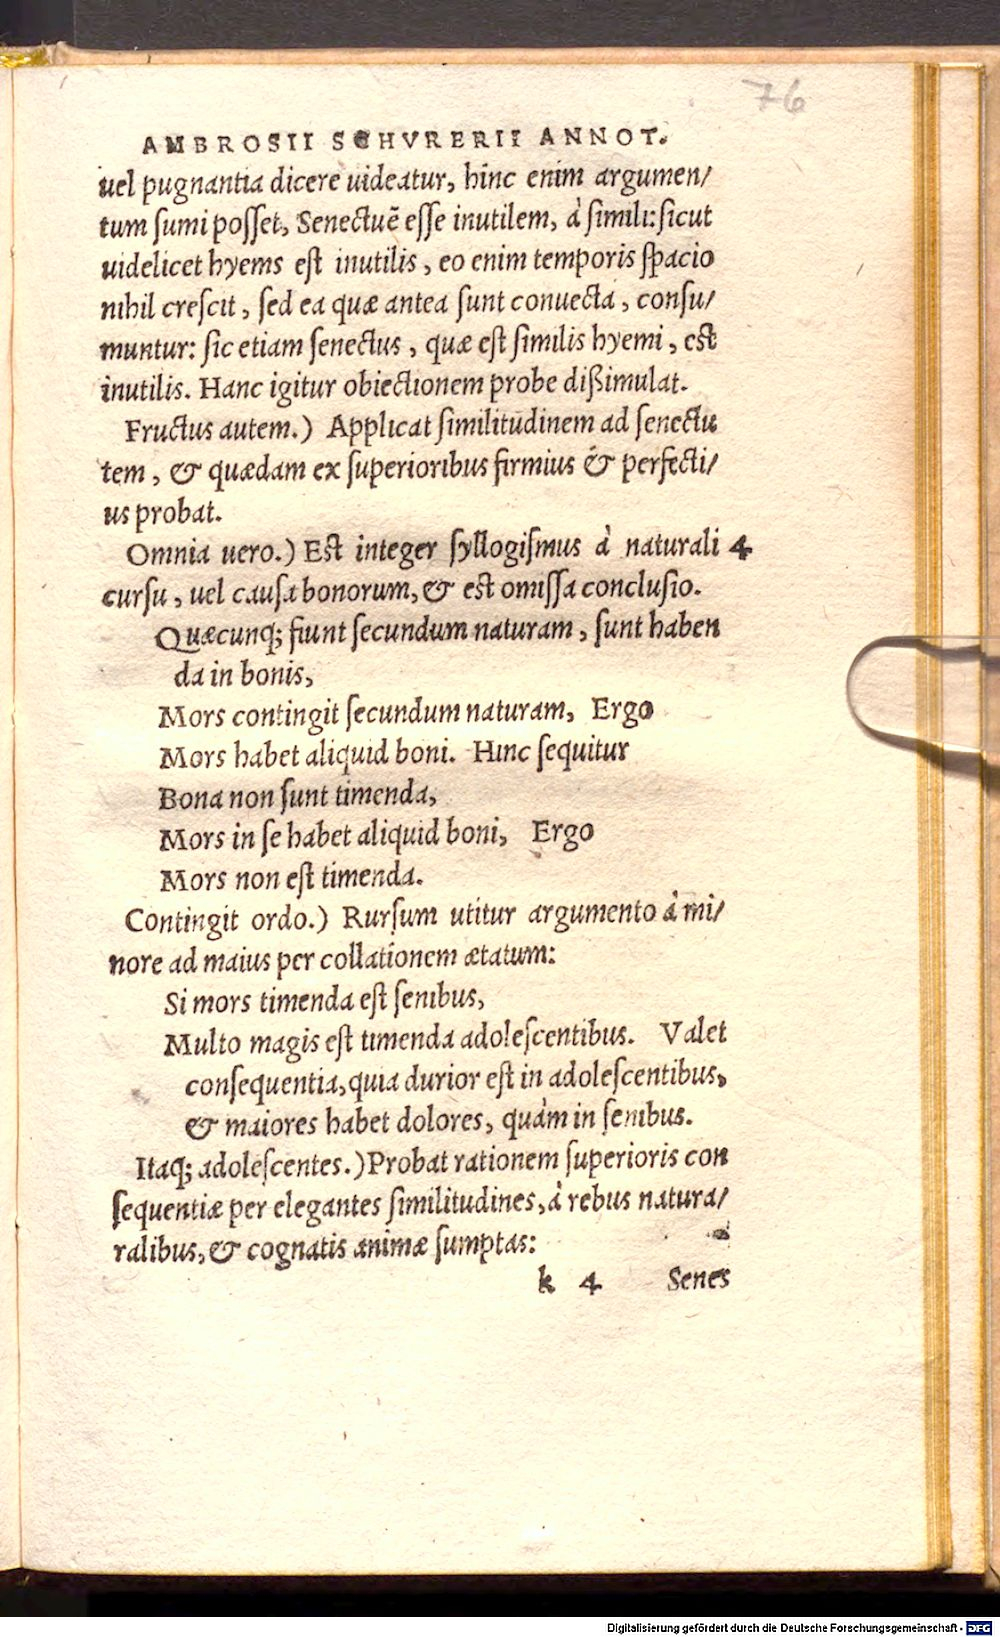 76
AMBROSII SCHVRERII ANNOT.
uel pugnantia dicere uideatur, hinc enim argumen/
tum sumi posset, Senectuẽ esse inutilem, à simili: sicut
uidelicet hyems est inutilis, eo enim temporis spacio
nihil crescit, sed ea quæ antea sunt conuecta, consu/
muntur: sic etiam senectus, quæ est similis hyemi, est
inutilis. Hanc igitur obiectionem probe dißimulat.
Fructus autem.) Applicat similitudinem ad senectu
tem, & quædam ex superioribus firmius & perfecti/
us probat.
Omnia uero.) Est integer syllogismus à naturali 4
cursu, uel causa bonorum, & est omissa conclusio.
Quæcunq; fiunt secundum naturam, sunt haben
da in bonis,
Mors contingit secundum naturam, Ergo
Mors habet aliquid boni. Hinc sequitur
Bona non sunt timenda,
Mors in se habet aliquid boni, Ergo
Mors non est timenda.
Contingit ordo.) Rursum utitur argumento à mi/
nore ad maius per collationem ætatum:
Si mors timenda est senibus,
Multo magis est timenda adolescentibus. Valet
consequentia, quia durior est in adolescentibus,
& maiores habet dolores, quàm in senibus.
Itaq; adolescentes.) Probat rationem superioris con
sequentiæ per elegantes similitudines, à rebus natura/
ralibus, & cognatis animæ sumptas:
k 4 Senes
Digitalisierung gefördert durch die Deutsche Forschungsgemeinschaft - DFG